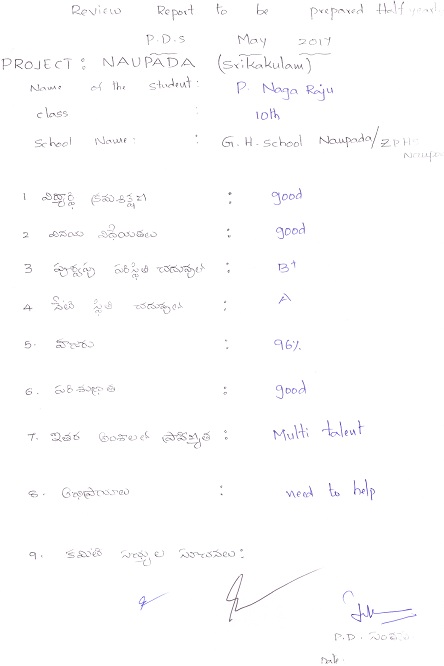 Review Report to be prepared Half year
P.D.S May 2017
PROJECT : NAUPADA (Srikakulam)
Name of the Student : P. Naga Raju
class : 10th
School Name : : G. H. School Naupada/ZPHS
1 విద్యార్థి క్రమశిక్షణ : good
2 వినయ విధేయతలు : good
3 పూర్వపు పరిస్థితి చదువులో : B+
4 నేటి స్థితి చదువులో : A
5. హాజరు : 96%
6. పరిశుభ్రత : good
7. ఇతర అంశాలలో ప్రావీణ్యత : Multi talent
8. అభిప్రాయాలు : need to help
9. కమిటీ సభ్యుల సూచనలు :
P.D.
Date: